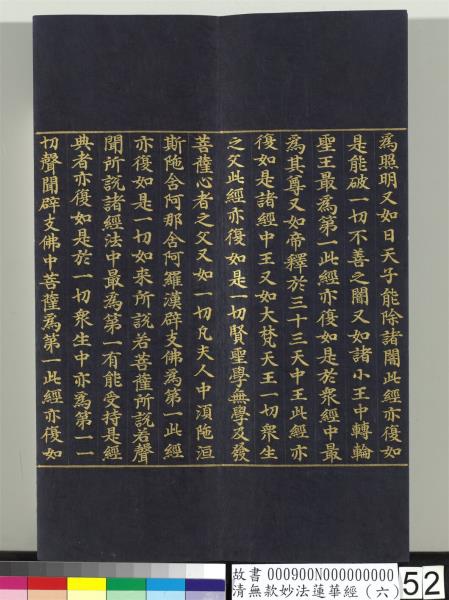 為照明又如日天子能除諸闇此經亦復如
是能破一切不善之闇又如諸小王中轉輪
聖王最為第一此經亦復如是於衆經中最
為其尊又如帝釋於三十三天中王此經亦
復如是諸經中王又如大梵天王一切衆生
之父此經亦復如是一切賢聖學無學及發
菩薩心者之父又如一切凡夫人中湏陁洹
斯陁含阿那含阿羅漢辟支佛為第一此經
亦復如是一切如來所說若菩薩所說若聲
聞所說諸經法中最為第一有能受持是經
典者亦復如是於一切衆生中亦為第一一
切聲聞辟支佛中菩薩為第一此經亦復如
故書 000900N000000000
清無款妙法蓮華經（六）
52